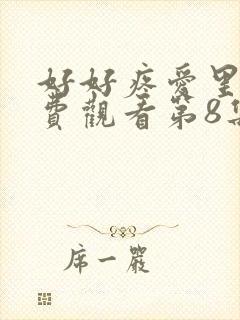 好好疼愛里
費觀看第8集
席一嚴